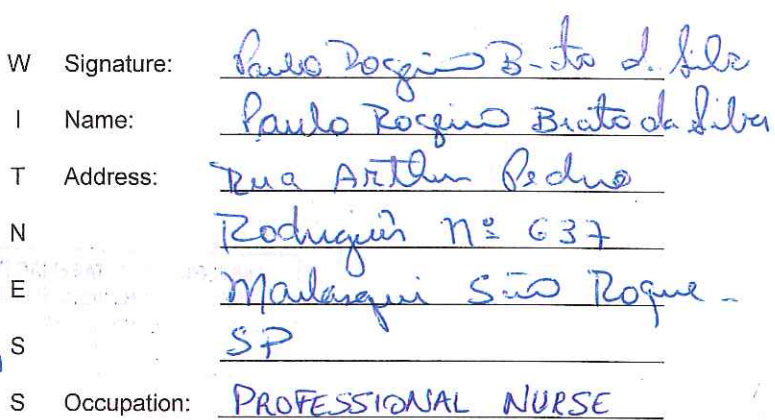 W Signature: Paulo Rogério B-ito d. Silv
I Name: Paulo Rogério Brito da Silva
T Address: Rua Arthur Pedro
N Rodrigues nº 637
E Mailasqui São Roque -
S SP
S Occupation: PROFESSIONAL NURSE